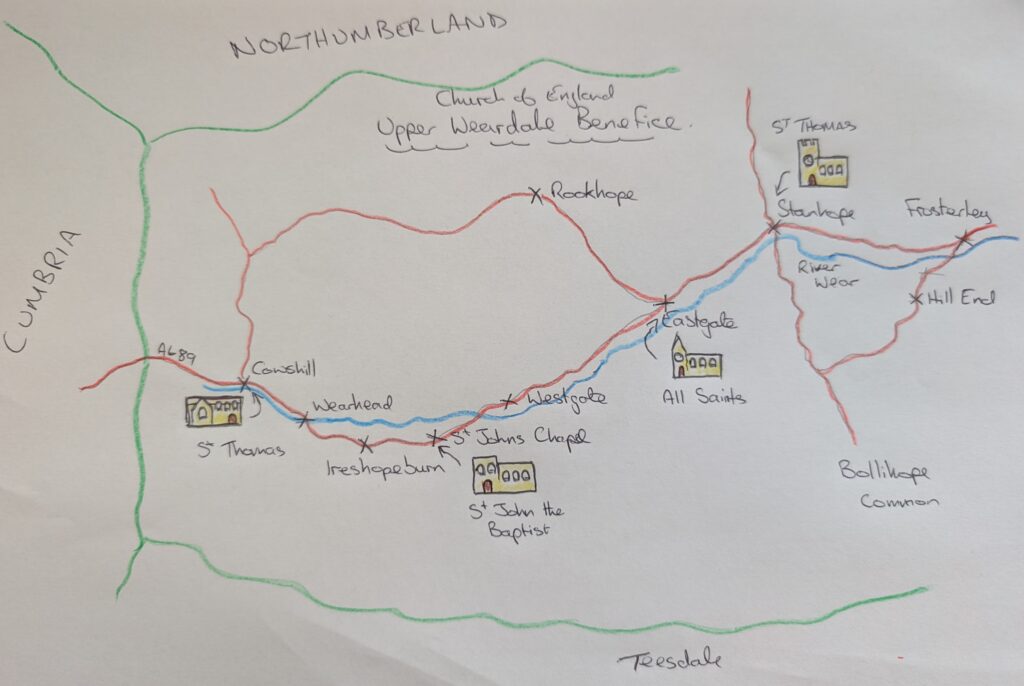 NORTHUMBERLAND
Church of England
Upper Weardale Benefice.
ST THOMAS
Rookhope
Stanhope
Frosterley
CUMBRIA
River
Wear
Hill End
Eastgate
A689
Cowshill
All Saints
Wearhead
Westgate
St Thomas
St Johns Chapel
Ireshopeburn
Bollihope
Common
St John the
Baptist
Teesdale